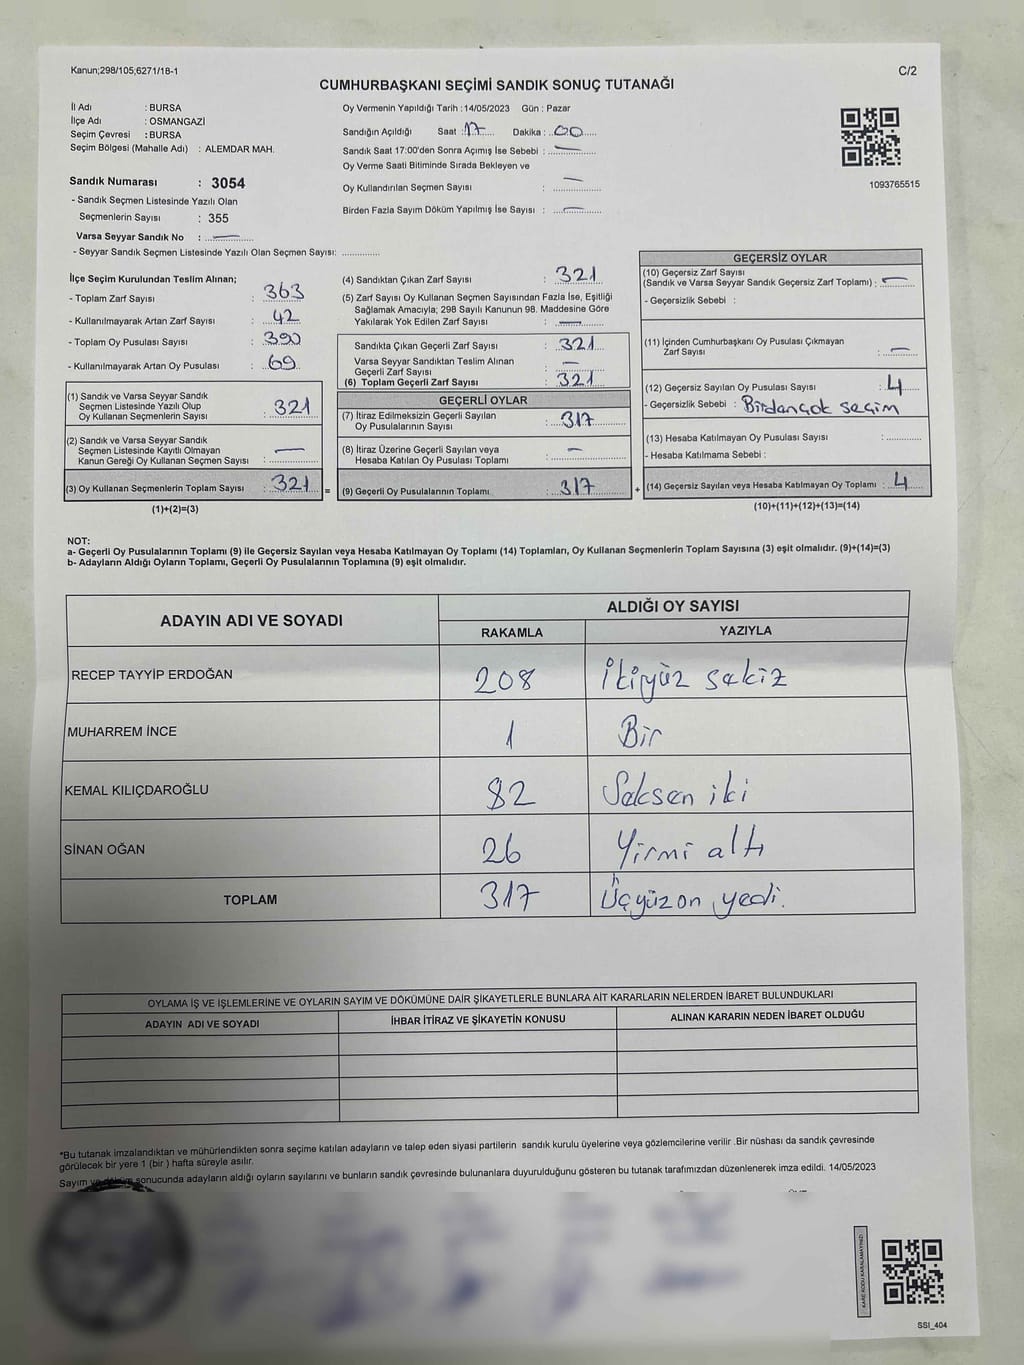 Kanun;298/105;6271/18-1
C/2
CUMHURBAŞKANI SEÇİMİ SANDIK SONUÇ TUTANAĞI
İl Adı : BURSA
İlçe Adı : OSMANGAZİ
Seçim Çevresi : BURSA
Seçim Bölgesi (Mahalle Adı) : ALEMDAR MAH.
Oy Vermenin Yapıldığı Tarih :14/05/2023 Gün : Pazar
Sandığın Açıldığı Saat : 17 Dakika : 00
Sandık Saat 17:00'den Sonra Açımış İse Sebebi : —
Oy Verme Saati Bitiminde Sırada Bekleyen ve
Oy Kullandırılan Seçmen Sayısı : —
Birden Fazla Sayım Döküm Yapılmış İse Sayısı : —
1093765515
Sandık Numarası : 3054
- Sandık Seçmen Listesinde Yazılı Olan
Seçmenlerin Sayısı : 355
Varsa Seyyar Sandık No : —
- Seyyar Sandık Seçmen Listesinde Yazılı Olan Seçmen Sayısı: ............
İlçe Seçim Kurulundan Teslim Alınan;
- Toplam Zarf Sayısı : 363
- Kullanılmayarak Artan Zarf Sayısı : 42
- Toplam Oy Pusulası Sayısı : 390
- Kullanılmayarak Artan Oy Pusulası : 69
(1) Sandık ve Varsa Seyyar Sandık
Seçmen Listesinde Yazılı Olup
Oy Kullanan Seçmenlerin Sayısı : 321
(2) Sandık ve Varsa Seyyar Sandık
Seçmen Listesinde Kayıtlı Olmayan
Kanun Gereği Oy Kullanan Seçmen Sayısı : —
(3) Oy Kullanan Seçmenlerin Toplam Sayısı : 321
(1)+(2)=(3)
(4) Sandıktan Çıkan Zarf Sayısı : 321
(5) Zarf Sayısı Oy Kullanan Seçmen Sayısından Fazla İse, Eşitliği
Sağlamak Amacıyla; 298 Sayılı Kanunun 98. Maddesine Göre
Yakılarak Yok Edilen Zarf Sayısı : —
Sandıkta Çıkan Geçerli Zarf Sayısı : 321
Varsa Seyyar Sandıktan Teslim Alınan
Geçerli Zarf Sayısı : —
(6) Toplam Geçerli Zarf Sayısı : 321
GEÇERLİ OYLAR
(7) İtiraz Edilmeksizin Geçerli Sayılan
Oy Pusulalarının Sayısı : 317
(8) İtiraz Üzerine Geçerli Sayılan veya
Hesaba Katılan Oy Pusulası Toplamı : —
(9) Geçerli Oy Pusulalarının Toplamı : 317
=
+
GEÇERSİZ OYLAR
(10) Geçersiz Zarf Sayısı
(Sandık ve Varsa Seyyar Sandık Geçersiz Zarf Toplamı) : —
- Geçersizlik Sebebi :
(11) İçinden Cumhurbaşkanı Oy Pusulası Çıkmayan
Zarf Sayısı : —
(12) Geçersiz Sayılan Oy Pusulası Sayısı : 4
- Geçersizlik Sebebi : Birdançok seçim
(13) Hesaba Katılmayan Oy Pusulası Sayısı : ............
- Hesaba Katılmama Sebebi :
(14) Geçersiz Sayılan veya Hesaba Katılmayan Oy Toplamı : 4
(10)+(11)+(12)+(13)=(14)
NOT:
a- Geçerli Oy Pusulalarının Toplamı (9) ile Geçersiz Sayılan veya Hesaba Katılmayan Oy Toplamı (14) Toplamları, Oy Kullanan Seçmenlerin Toplam Sayısına (3) eşit olmalıdır. (9)+(14)=(3)
b- Adayların Aldığı Oyların Toplamı, Geçerli Oy Pusulalarının Toplamına (9) eşit olmalıdır.
ADAYIN ADI VE SOYADI
ALDIĞI OY SAYISI
RAKAMLA YAZIYLA
RECEP TAYYİP ERDOĞAN 208 İkiyüz sekiz
MUHARREM İNCE 1 Bir
KEMAL KILIÇDAROĞLU 82 Seksen iki
SİNAN OĞAN 26 Yirmi altı
TOPLAM 317 Üçyüz on yedi.
OYLAMA İŞ VE İŞLEMLERİNE VE OYLARIN SAYIM VE DÖKÜMÜNE DAİR ŞİKAYETLERLE BUNLARA AİT KARARLARIN NELERDEN İBARET BULUNDUKLARI
ADAYIN ADI VE SOYADI İHBAR İTİRAZ VE ŞİKAYETİN KONUSU ALINAN KARARIN NEDEN İBARET OLDUĞU
*Bu tutanak imzalandıktan ve mühürlendikten sonra seçime katılan adayların ve talep eden siyasi partilerin sandık kurulu üyelerine veya gözlemcilerine verilir .Bir nüshası da sandık çevresinde
görülecek bir yere 1 (bir ) hafta süreyle asılır.
Sayım ve döküm sonucunda adayların aldığı oyların sayılarını ve bunların sandık çevresinde bulunanlara duyurulduğunu gösteren bu tutanak tarafımızdan düzenlenerek imza edildi. 14/05/2023
KARE KODU KARALAMAYINIZ!
SSI_404